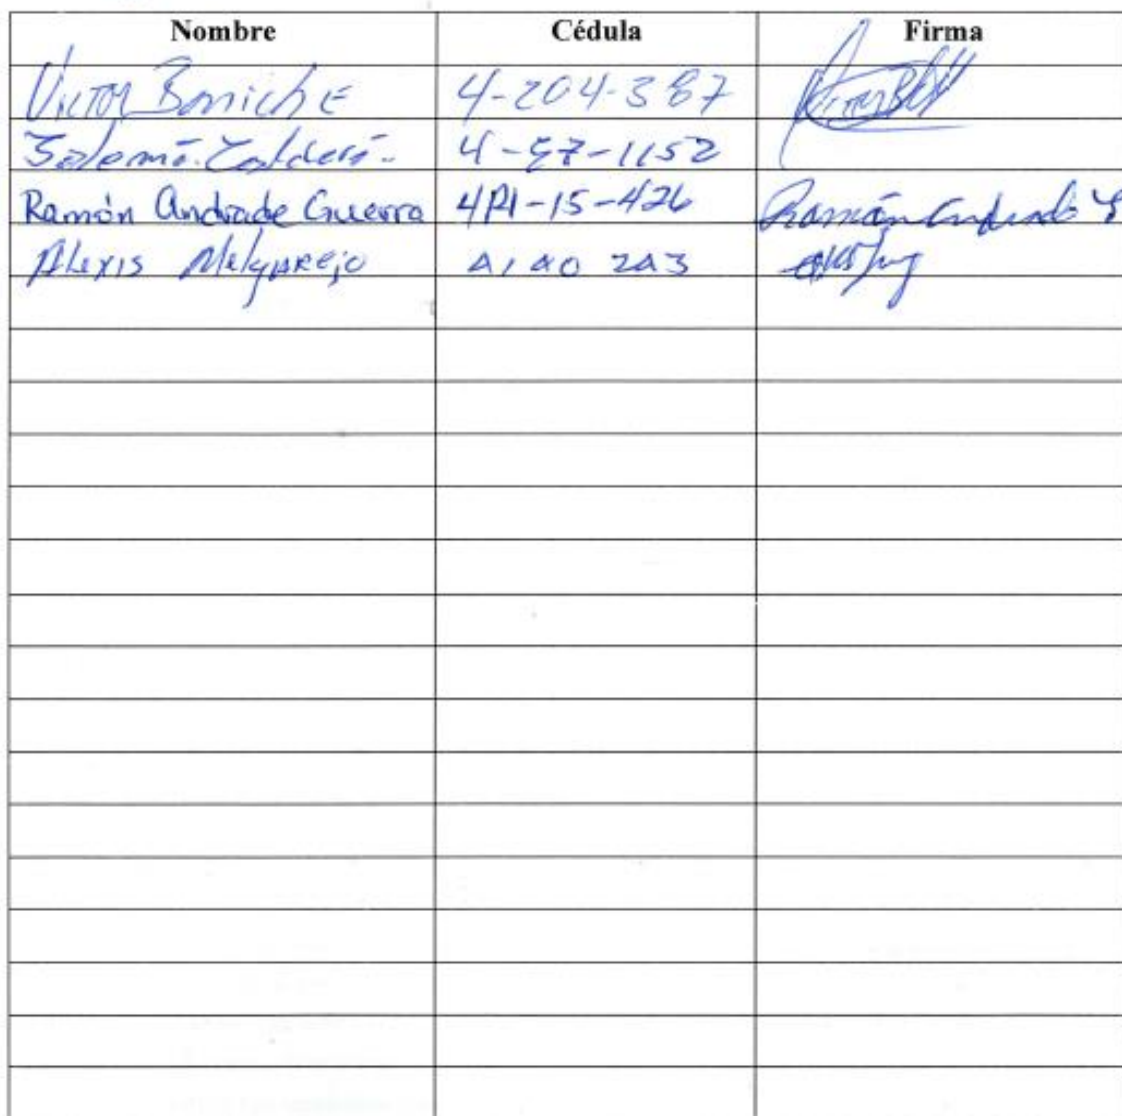 Nombre Cédula Firma
Victor Boniche 4-204-387
4-57-1152
Ramón Andrade Guerra 4PI-15-426 Ramón Andrade G
Alexis Melgarejo 4140 243